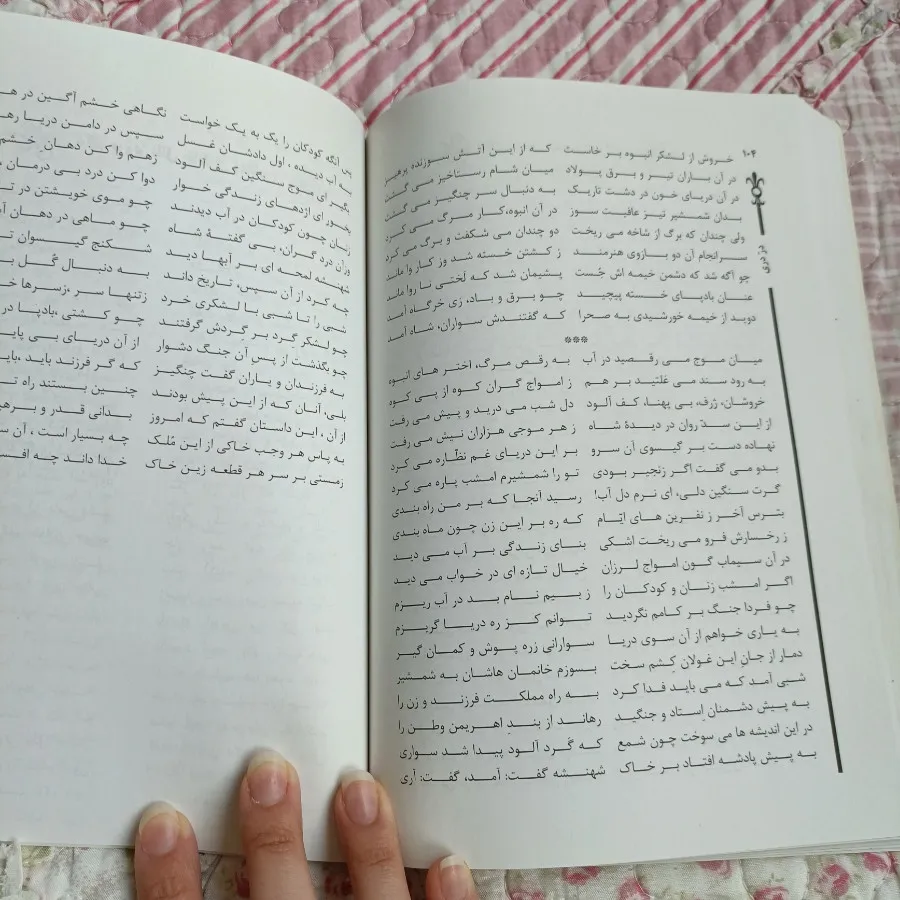 ۱۰۴
خروش از لشکر انبوه بر خاست که از این آتش سوزنده پرهیز
در آن باران تیر و برق پولاد میان شام رستاخیز می گشت
در آن دریای خون در دشت تاریک به دنبال سر چنگیز می گشت
بدان شمشیر تیز عافیت سوز در آن انبوه، کار مرگ می کرد
ولی چندان که برگ از شاخه می ریخت دو چندان می شکفت و برگ می کرد
سرانجام آن دو بازوی هنرمند ز کشتن خسته شد وز کار واماند
چو آگه شد که دشمن خیمه اش جُست پشیمان شد که لَختی نا روا ماند
عنان بادپای خسته پیچید چو برق و باد، زی خرگاه آمد
دوید از خیمه خورشیدی به صحرا که گفتندش سواران، شاه آمد
***
میان موج می رقصید در آب به رقص مرگ، اختر های انبوه
به رود سند می غلتید بر هم ز امواج گران کوه از پی کوه
خروشان، ژرف، بی پهنا، کف آلود دل شب می درید و پیش می رفت
از این سدّ روان در دیدهٔ شاه ز هر موجی هزاران نیش می رفت
نهاده دست بر گیسوی آن سرو بر این دریای غم نظّاره می کرد
بدو می گفت اگر زنجیر بودی تو را شمشیرم امشب پاره می کرد
گرت سنگین دلی، ای نرم دل آب! رسید آنجا که بر من راه بندی
بترس آخر ز نفرین های ایّام که ره بر این زن چون ماه بندی
ز رخسارش فرو می ریخت اشکی بنای زندگی بر آب می دید
در آن سیماب گون امواج لرزان خیال تازه ای در خواب می دید
اگر امشب زنان و کودکان را ز بیم نام بد در آب ریزم
چو فردا جنگ بر کامم نگردید توانم کز ره دریا گریزم
به یاری خواهم از آن سوی دریا سوارانی زره پوش و کمان گیر
دمار از جانِ این غولان کِشم سخت بسوزم خانمان هاشان به شمشیر
شبی آمد که می باید فدا کرد به راه مملکت فرزند و زن را
به پیش دشمنان اِستاد و جنگید رهاند از بندِ اهریمن وطن را
در این اندیشه ها می سوخت چون شمع که گَرد آلود پیدا شد سواری
به پیش پادشه افتاد بر خاک شهنشه گفت: آمد، گفت: آری
پس آنگه کودکان را یک به یک خواست نگاهی خشم آگین در
به آب دیده ، اول دادشان غسل سپس در دامن دریا
بگیر ای موج سنگین کف آلود زهم وا کن دهانِ خشم
بخور ای اژدهای زندگی خوار دوا کن درد بی درمان
زنان چون کودکان در آب دیدند چو موی خویشتن در
وزان درد گران، بی گفتهٔ شاه چو ماهی در دهان
شهنشه لمحه ای بر آبها دید شکنج گیسوان
چه کرد از آن سپس، تاریخ داند به دنبال گُل
شبی را تا شبی با لشکری خرد زتنها سر ،زسرها
چو لشکر گرد بر گِردش گرفتند چو کشتی ،بادپا در
چو بگذشت از پس آن جنگ دشوار از آن دریای بی
به فرزندان و یاران گفت چنگیز که گر فرزند باید ،باید
بلی، آنان که از این پیش بودند چنین بستند راه
از آن ، این داستان گفتم که امروز بدانی قدر و
به پاس هر وجب خاکی از این مُلک چه بسیار است ، آن
زمستی بر سر هر قطعه زین خاک خدا داند چه